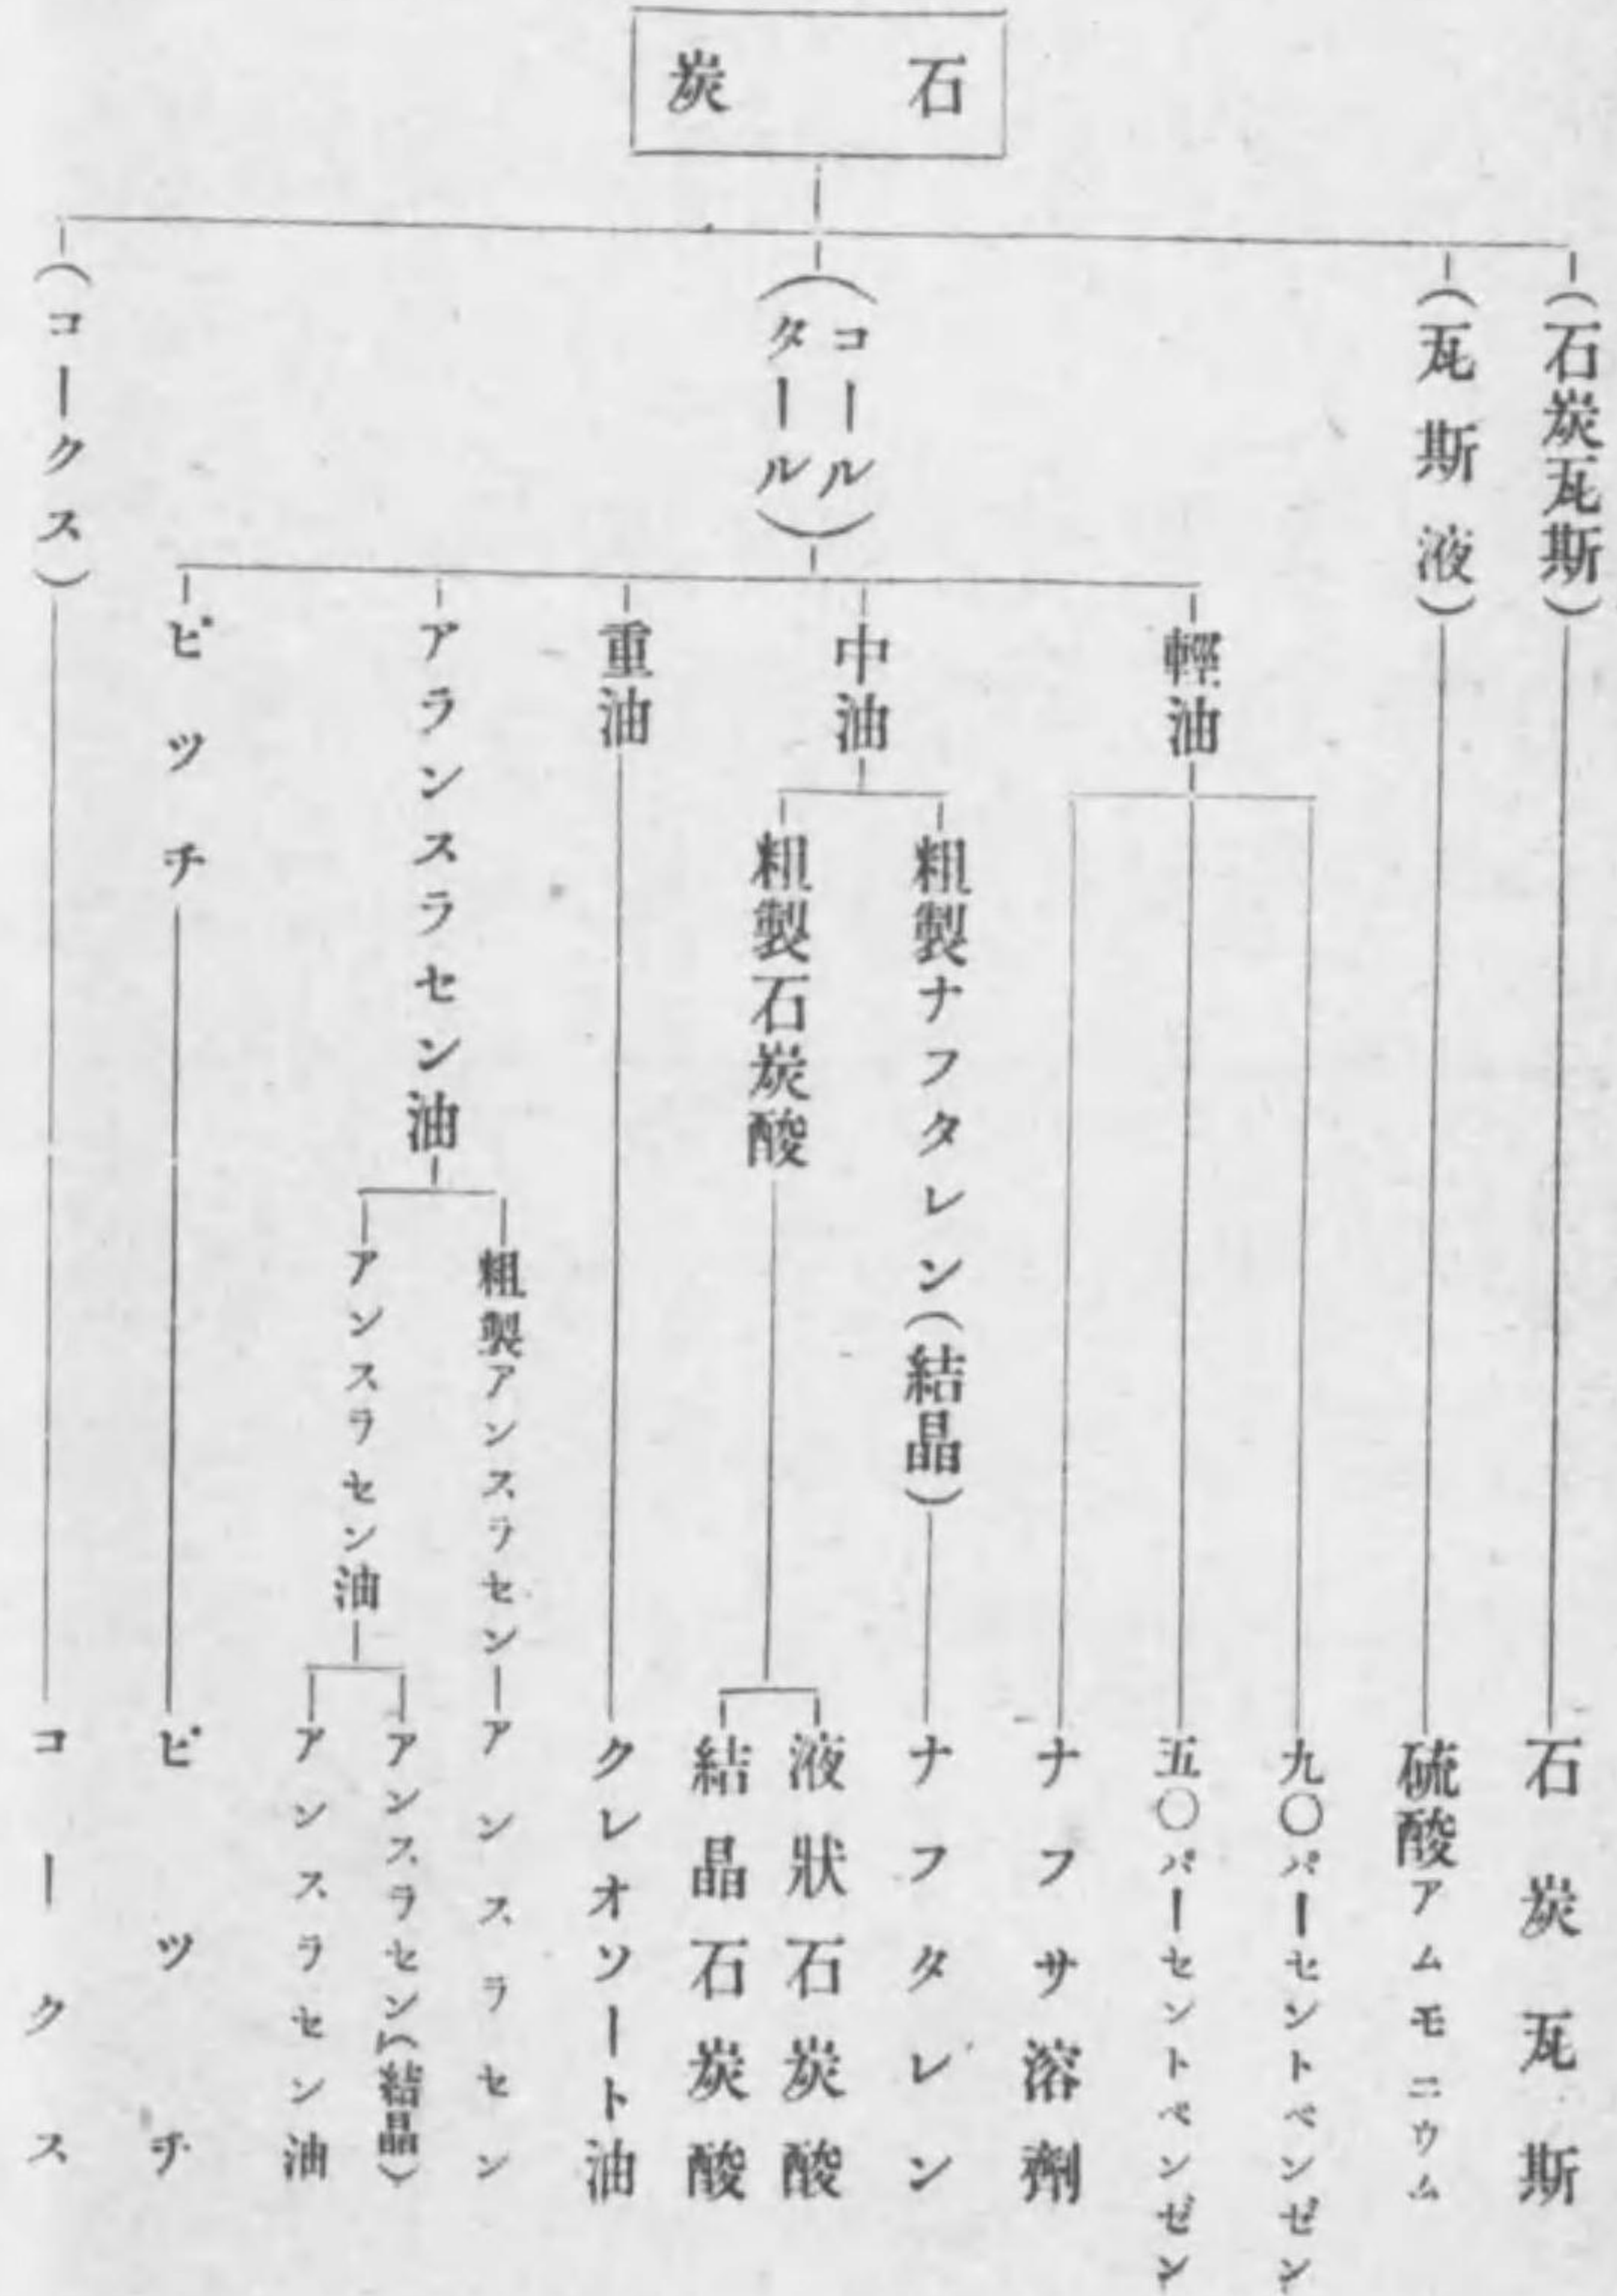 石炭
(石炭瓦斯)
(瓦斯液)
(コール
タール)
(コークス)
輕油
中油
重油
アランスラセン油
ピツチ
粗製ナフタレン(結晶)
粗製石炭酸
粗製アンスラセン
アンスラセン油
石炭瓦斯
硫酸アムモニウム
九〇パーセントベンゼン
五〇パーセントベンゼン
ナフサ溶劑
ナフタレン
液狀石炭酸
結晶石炭酸
クレオソート油
アンスラセン
アンスラセン(結晶)
アンスラセン油
ピツチ
コークス